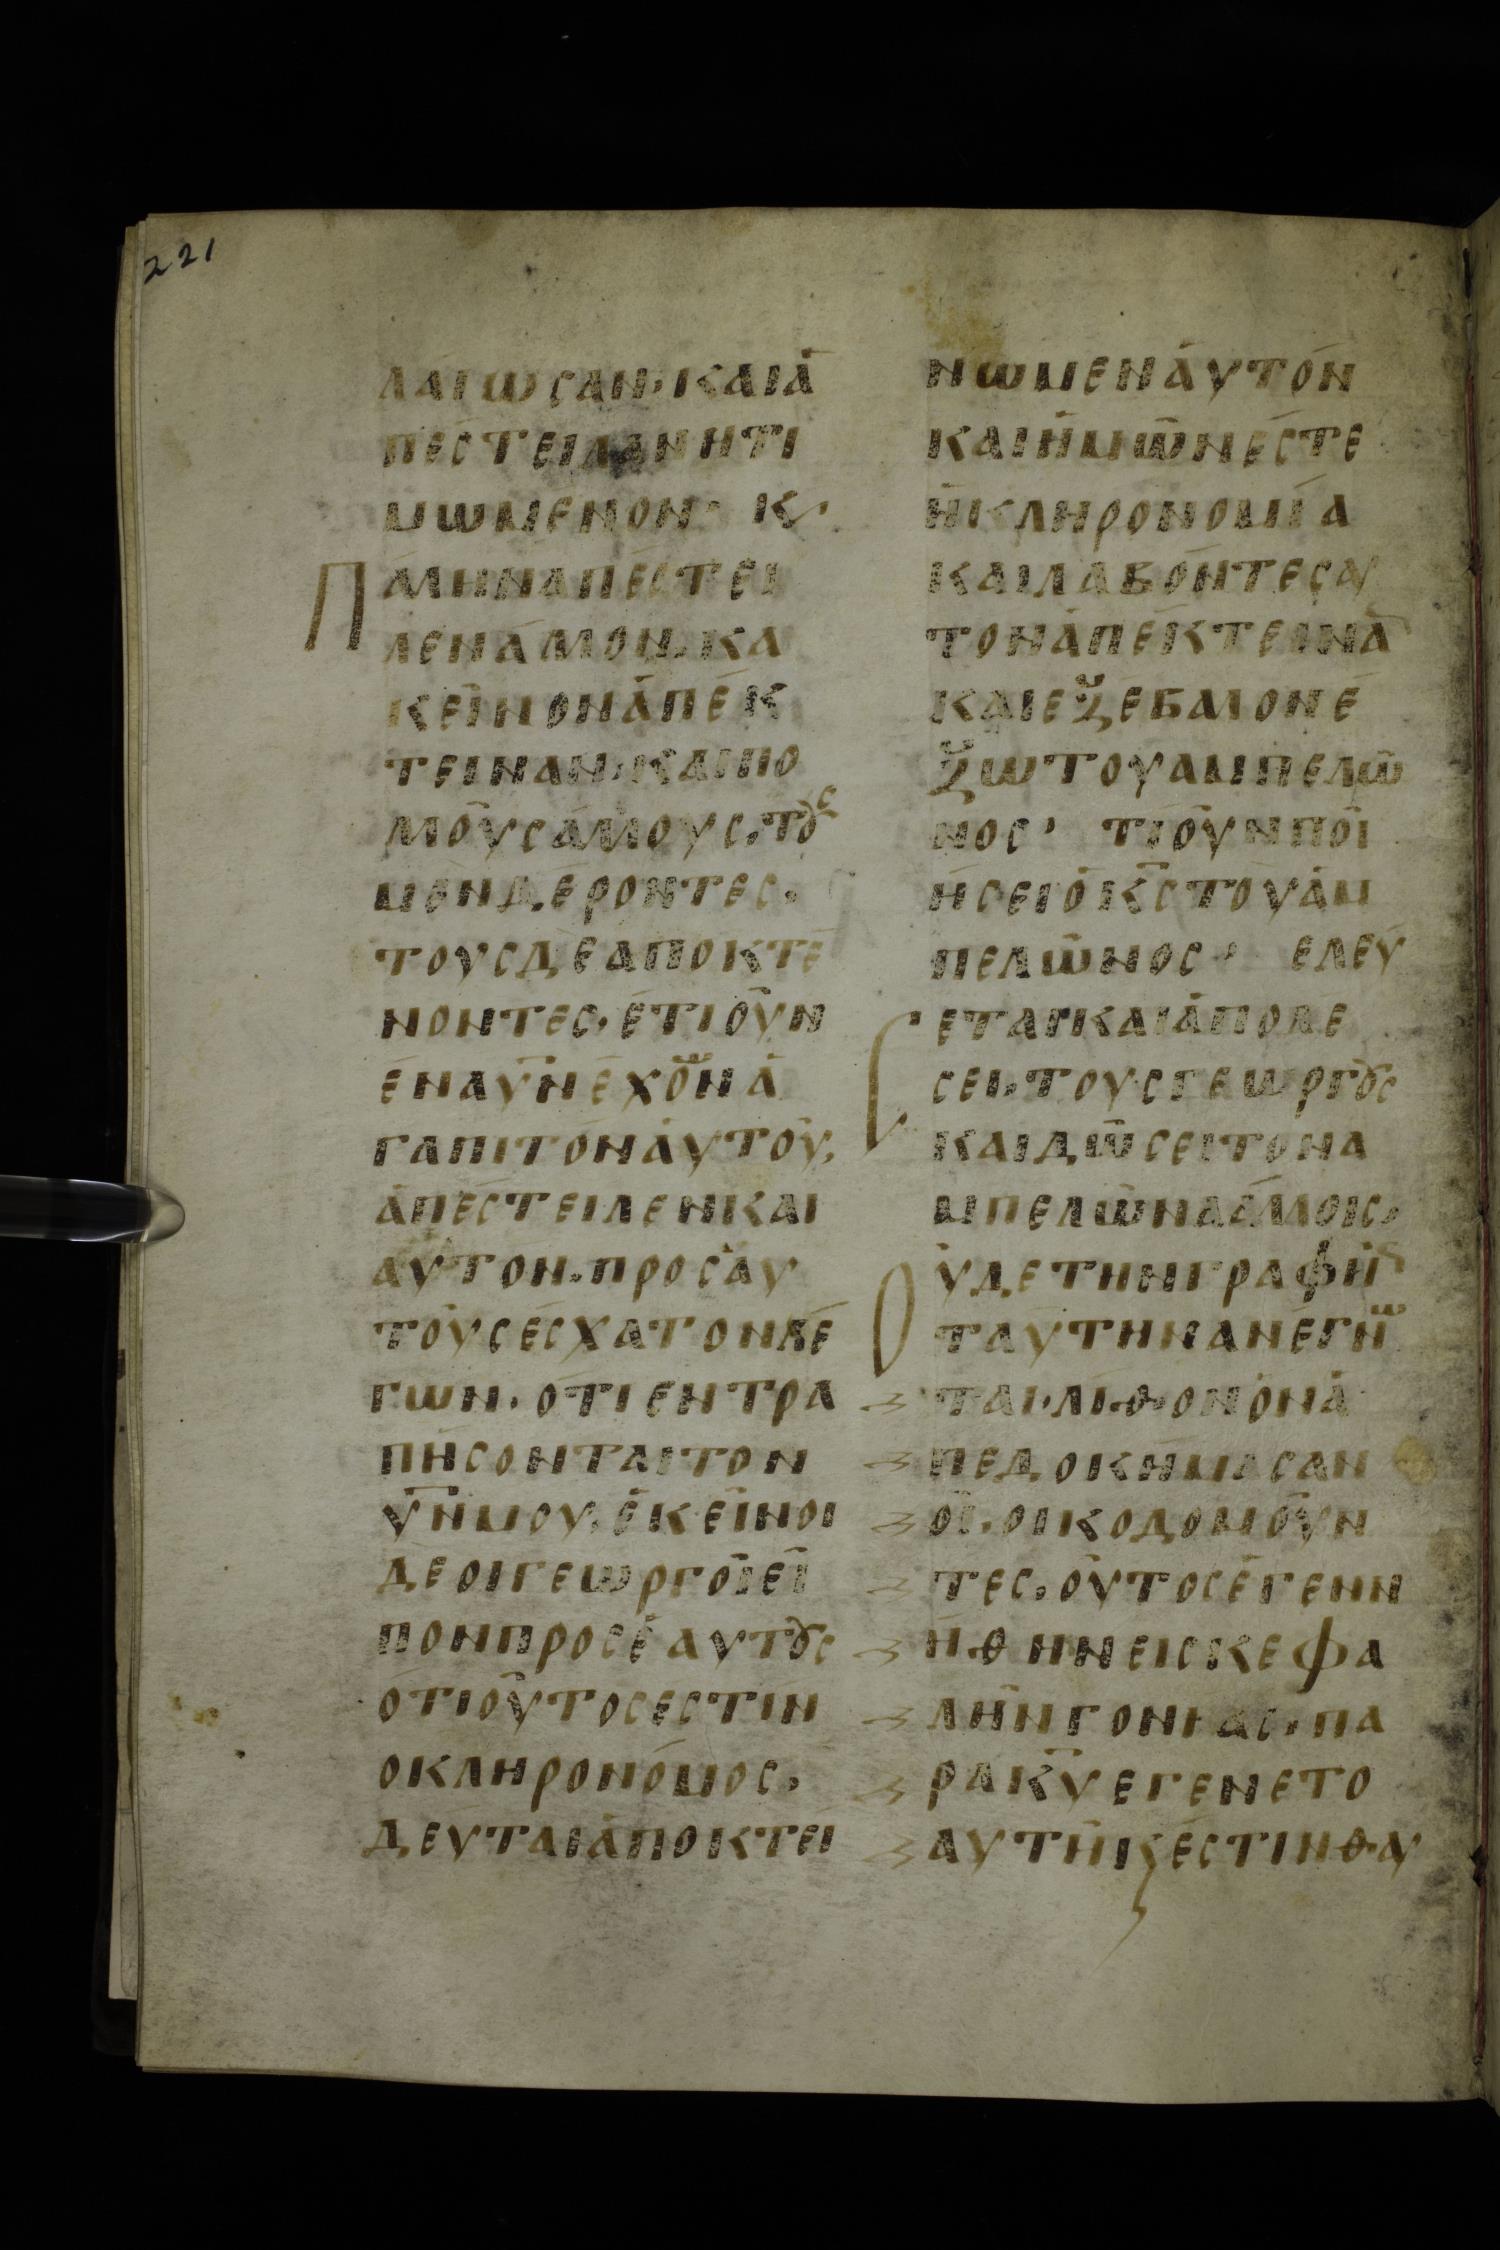 221
ΛΑΙΩCΑΝ, ΚΑΙΑ
ΠΕCΤΕΙΛΑΝ ΗΤΙ
ΜΩΜΕΝΟΝ, Κ,
ΠΑΛΛΗΝΑΠΕCΤΕΙ
ΛΕΝΑΛΛΟΝ, ΚΑ
ΚΕΙΝΟΝΑΠΕΚ
ΤΕΙΝΑΝ, ΚΑΙΠΟ
ΛΛΟΥCΑΛΛΟΥC, ΤȢC
ΜΕΝΔΕΡΟΝΤΕC,
ΤΟΥCΔΕΑΠΟΚΤΕ
ΝΟΝΤΕC, ΕΤΙΟΥΝ
ΕΝΑΥ̅Ν̅ΕΧΟΝΑ
ΓΑΠΙΤΟΝΑΥΤΟΥ,
ΑΠΕCΤΕΙΛΕΝΚΑΙ
ΑΥΤΟΝ, ΠΡΟCΑΥ
ΤΟΥCΕCΧΑΤΟΝΛΕ
ΓΩΝ, ΟΤΙΕΝΤΡΑ
ΠΗCΟΝΤΑΙΤΟΝ
Υ̅Ν̅ΜΟΥ, ΕΚΕΙΝΟΙ
ΔΕΟΙΓΕΩΡΓΟΙΕΙ
ΠΟΝΠΡΟCΕΑΥΤȢC
ΟΤΙΟΥΤΟCΕCΤΙΝ
ΟΚΛΗΡΟΝΟΜΟC,
ΔΕΥΤΑΙΑΠΟΚΤΕΙ
ΝΩΜΕΝΑΥΤΟΝ
ΚΑΙΗΜΩΝΕCΤΕ
ΗΚΛΗΡΟΝΟΜΙΑ
ΚΑΙΛΑΒΟΝΤΕCΑΥ
ΤΟΝΑΠΕΚΤΕΙΝΑ
ΚΑΙΕΞΕΒΑΛΛΟΝΕ
ΞΩΤΟΥΑΜΠΕΛΩ
ΝΟC, ΤΙΟΥΝΠΟΙ
ΗCΕΙΟΚ̅C̅ΤΟΥΑΜ
ΠΕΛΩΝΟC, ΕΛΕΥ
CΕΤΑΙΚΑΙΑΠΟΛΕ
CΕΙ, ΤΟΥCΓΕΩΡΓȢC
ΚΑΙΔΩCΕΙΤΟΝΑ
ΜΠΕΛΩΝΑΑΛΛΟΙC,
ΟΥΔΕΤΗΝΓΡΑΦΗ
ΤΑΥΤΗΝΑΝΕΓΝΩ
ΤΑΙ, ΛΙΘΟΝΟΝΑ
ΠΕΔΟΚΗΜΑCΑΝ
ΟΙ, ΟΙΚΟΔΟΜΟΥΝ
ΤΕC, ΟΥΤΟCΕΓΕΝΝ
ΗΘΗΝΕΙCΚΕΦΑ
ΛΗΝΓΟΝΙΑC, ΠΑ
ΡΑΚ̅Υ̅ΕΓΕΝΕΤΟ
ΑΥΤΗΚ,ΕCΤΙΝΘΑΥ